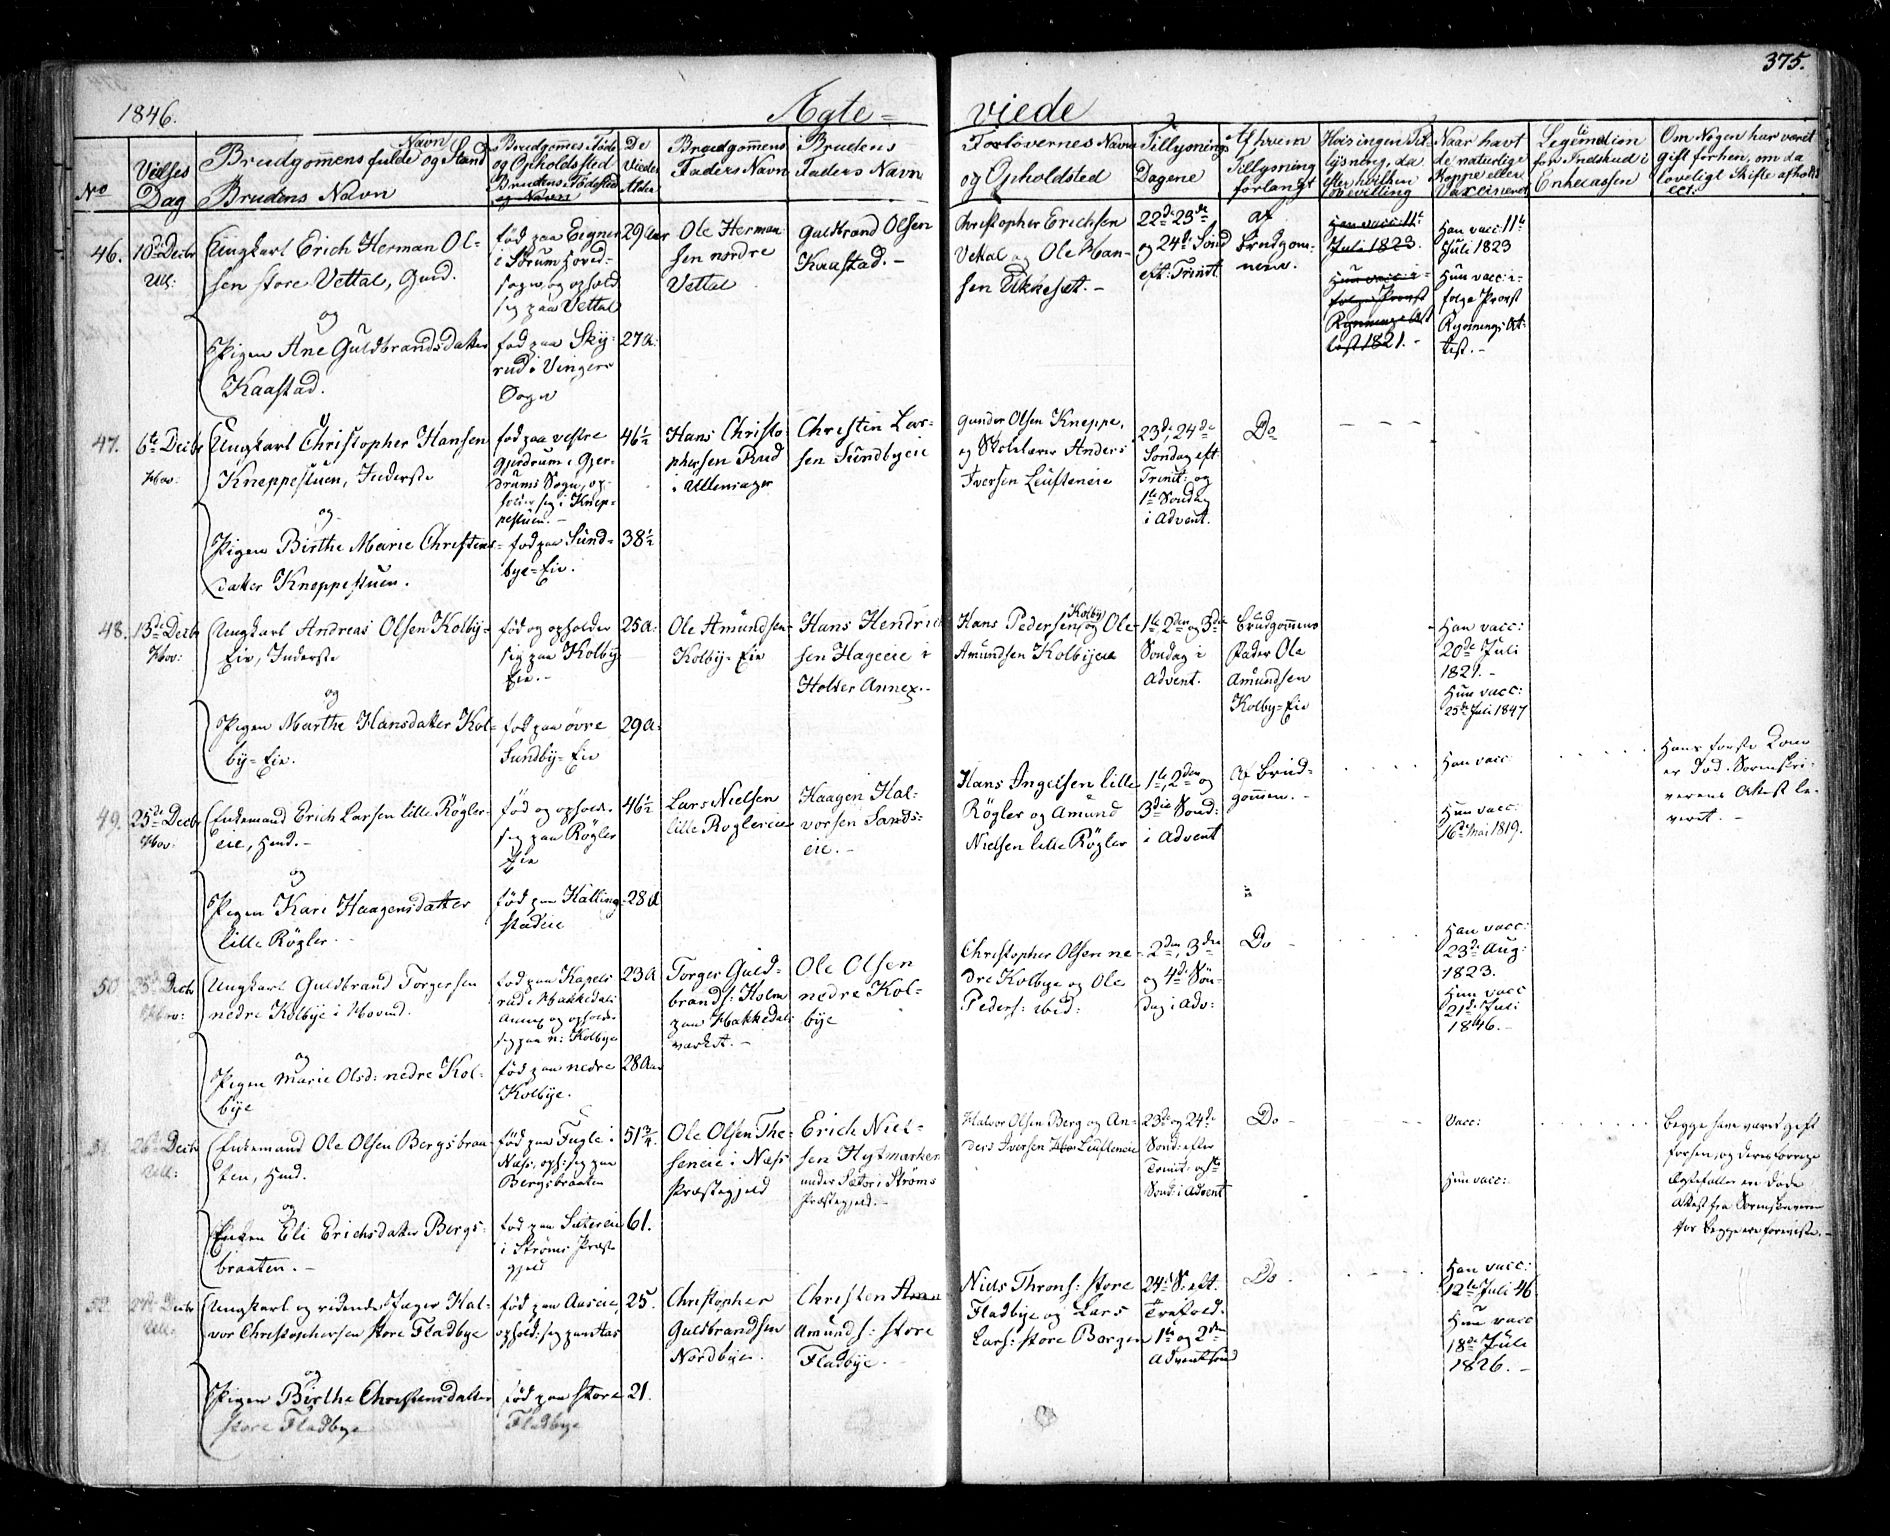 375.
1846. Ægte= viede
No
Vielses Dag
Brudgommens fulde Navn og Stand
Brudens Navn
BrudgommesFøde og Opholdsted
Brudens Fødested og Navn
De Viedes Alder
Brudgommens Faders Navn
Brudens Faders Navn
Forlovernes Navn og Opholdsted
Tillysnings Dagene
Af hvem Tillysning forlangt
Naar havt de naturlige Kopper eller Vaccineret
Legitimation for Indskud i Enkecassen
Om Nogen har været gift forhen, om da lovligt Skifte afholdt ect:
46.
10de Decbr
Ull:
Ungkarl Erich Herman Ol=
sen store Vettal, Gmd.
og
Pigen Ane Guldbrandsdatter
Kaastad.
født paa Eigner
i Sørum Hoved=
sogn, og ophold
sig paa Vettal
født paa Sky=
rud i Vinger
Sogn
29 Aar
27 A:
Ole Herman
sen nordre
Vettal
Guldbrand Olsen
Kaastad. -
Christopher Erichsen
Vekal og Ole Han=
sen Ukkeset. -
22de 23de
og 24de Sønd
eft: Trinit
Af
Brudgom=
men.
Han vacc: 11te
Juli 1823.
Hun vacc: i=
følge Provst
Rynnings At
test 1821. -
Han vacc: 11te
Juli 1823
Hun vacc: i=
følge Provst
Rynnings At:
test. -
47.
6te Decbr
Hov:
Ungkarl Christopher Hansen
Kneppestuen, Inderste
og
Pigen Birthe Marie Christens=
datter Kneppestuen.
født paa vestre
Gjerdrum i Gjer=
drums Sogn, op=
holder sig i Knep=
pestuen. -
født paa Sund=
bye=Eie.
46½
38½
Hans Christo
phersen Rud
i Ullensager
Christen Lar=
sen Sundbyeie
Gunder Olsen Kneppe,
og Skolelærer Anders
Iversen Leufteneie
23de, 24de
Søndag eft
Trinit: og
1ste Søndag
i Advent.
Do
48.
13de Decbr
Hov:
Ungkarl Andreas Olsen Kolby=
Eie, Inderste
og
Pigen Marthe Hansdatter Kol=
by=Eie.
født og opholder
sig paa Kolby
Eie. -
født paa øvre
Sundby=Eie
25 A:
29 A:
Ole Amundsen
Kolby=Eie
Hans Hendrich
sen Hageeie i
Holter Annex. -
Hans Pedersen Kolby og Ole
Amundsen Kolbyeie
1ste, 2den og 3die
Søndag i
Advent.
Brudgommens
Fader Ole
Amundsen
Kolby=Eie
Han vacc:
20de Juli
1821. -
Hun vacc:
25de Juli 1847
49.
25de Decbr
Hov:
Enkemand Erich Larsen lille Røgler=
eie, Hmd. -
og
Pigen Kari Haagensdatter
lille Røgler. -
født og opholde.
sig paa Røgler
Eie
født paa Kalling=
stadeie
46½
28 A
Lars Nielsen
lille Røglereie
Haagen Hal=
vorsen Sands=
eie. -
Hans Ingelsen lille
Røgler og Amund
Nielsen lille Røgler
1ste, 2den og
3die Sønd:
i Advent
Af Brud=
gommen. -
Han vacc
Hun vacc:
16de Mai 1819.
Hans første Kone
er død. Sorenskri=
verens Attest le=
veret. -
50
25de Decbr
Hov:
Ungkarl Guldbrand Torgersen
nedre Kolbye i Hovind.
og
Pigen Marie Olsd: nedre Kol=
bye
født paa Kagels
rud i Hakkedals
Annex og ophold:
sig paa n: Kolbye
født paa nedre
Kolbye.
23 A
28 Aar
Torger Guld=
brands: Holm
paa Hakkedals
værket. -
Ole Olsen
nedre Kol=
bye
Christopher Olsen ne=
dre Kolbye og Ole
Peders: ibid:
2den, 3die
og 4de Søn=
dag i Adv:
Do -
Han vacc:
23de Aug:
1823.
Hun vacc
21de Juli
1846. -
51.
26de Decbr
Ull:
Enkemand Ole Olsen Bergsbraa=
ten, Hmd.
og
Enken Eli Erichsdatter Bergs=
braaten. -
født paa Fugle i
Næss, oph: sig paa
Bergsbraaten
født paa Sætereie
i Strøms Præste
gjeld
51¾
61.
Ole Olsen The=
seneie i Næss
Præstegjeld
Erich Niel=
sen Hytmarken
under Sæter i Strøms
Præstegjeld. -
Halvor Olsen Berg og An=
ders Iversen Leufteneie
23de og 24de
Sønd: efter
Trinit: og 1ste
Sønd: i Advent
Do -
Vacc:
Hun vacc:
Begge have været gift
forhen, og deres forrige
Ægtefæller ere døde
Attest fra Sorenskriveren
for begge ere foreviste. -
52.
Decbr
Ull:
Ungkarl og ridende Jæger Hal=
vor Christophersen store Fladbye
og
Pigen Birthe Christensdatter
store Fladbye
født paa Aaseie,
ophold: sig paa Aas
født paa store
Fladbye
25.
21.
Christopher
Guldbrandsen
Nordbye.
Christen
Amunds: store
Fladbye. -
Niels Throns: store
Fladbye og Lars
Lars: store Bergen
24de S: eft.
Trefold.
1ste og 2den
Adventsønd
Do -
Han vacc:
12te Juli 46
Hun vacc
18de Juli
1826. -